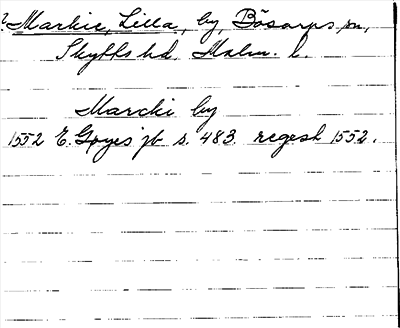 ? Markie, Lilla, by, Bösarps sn,
Skytts hd. Malm. l.
Marcki by
1552 E. Gøyes' jb s. 483. regest 1552.